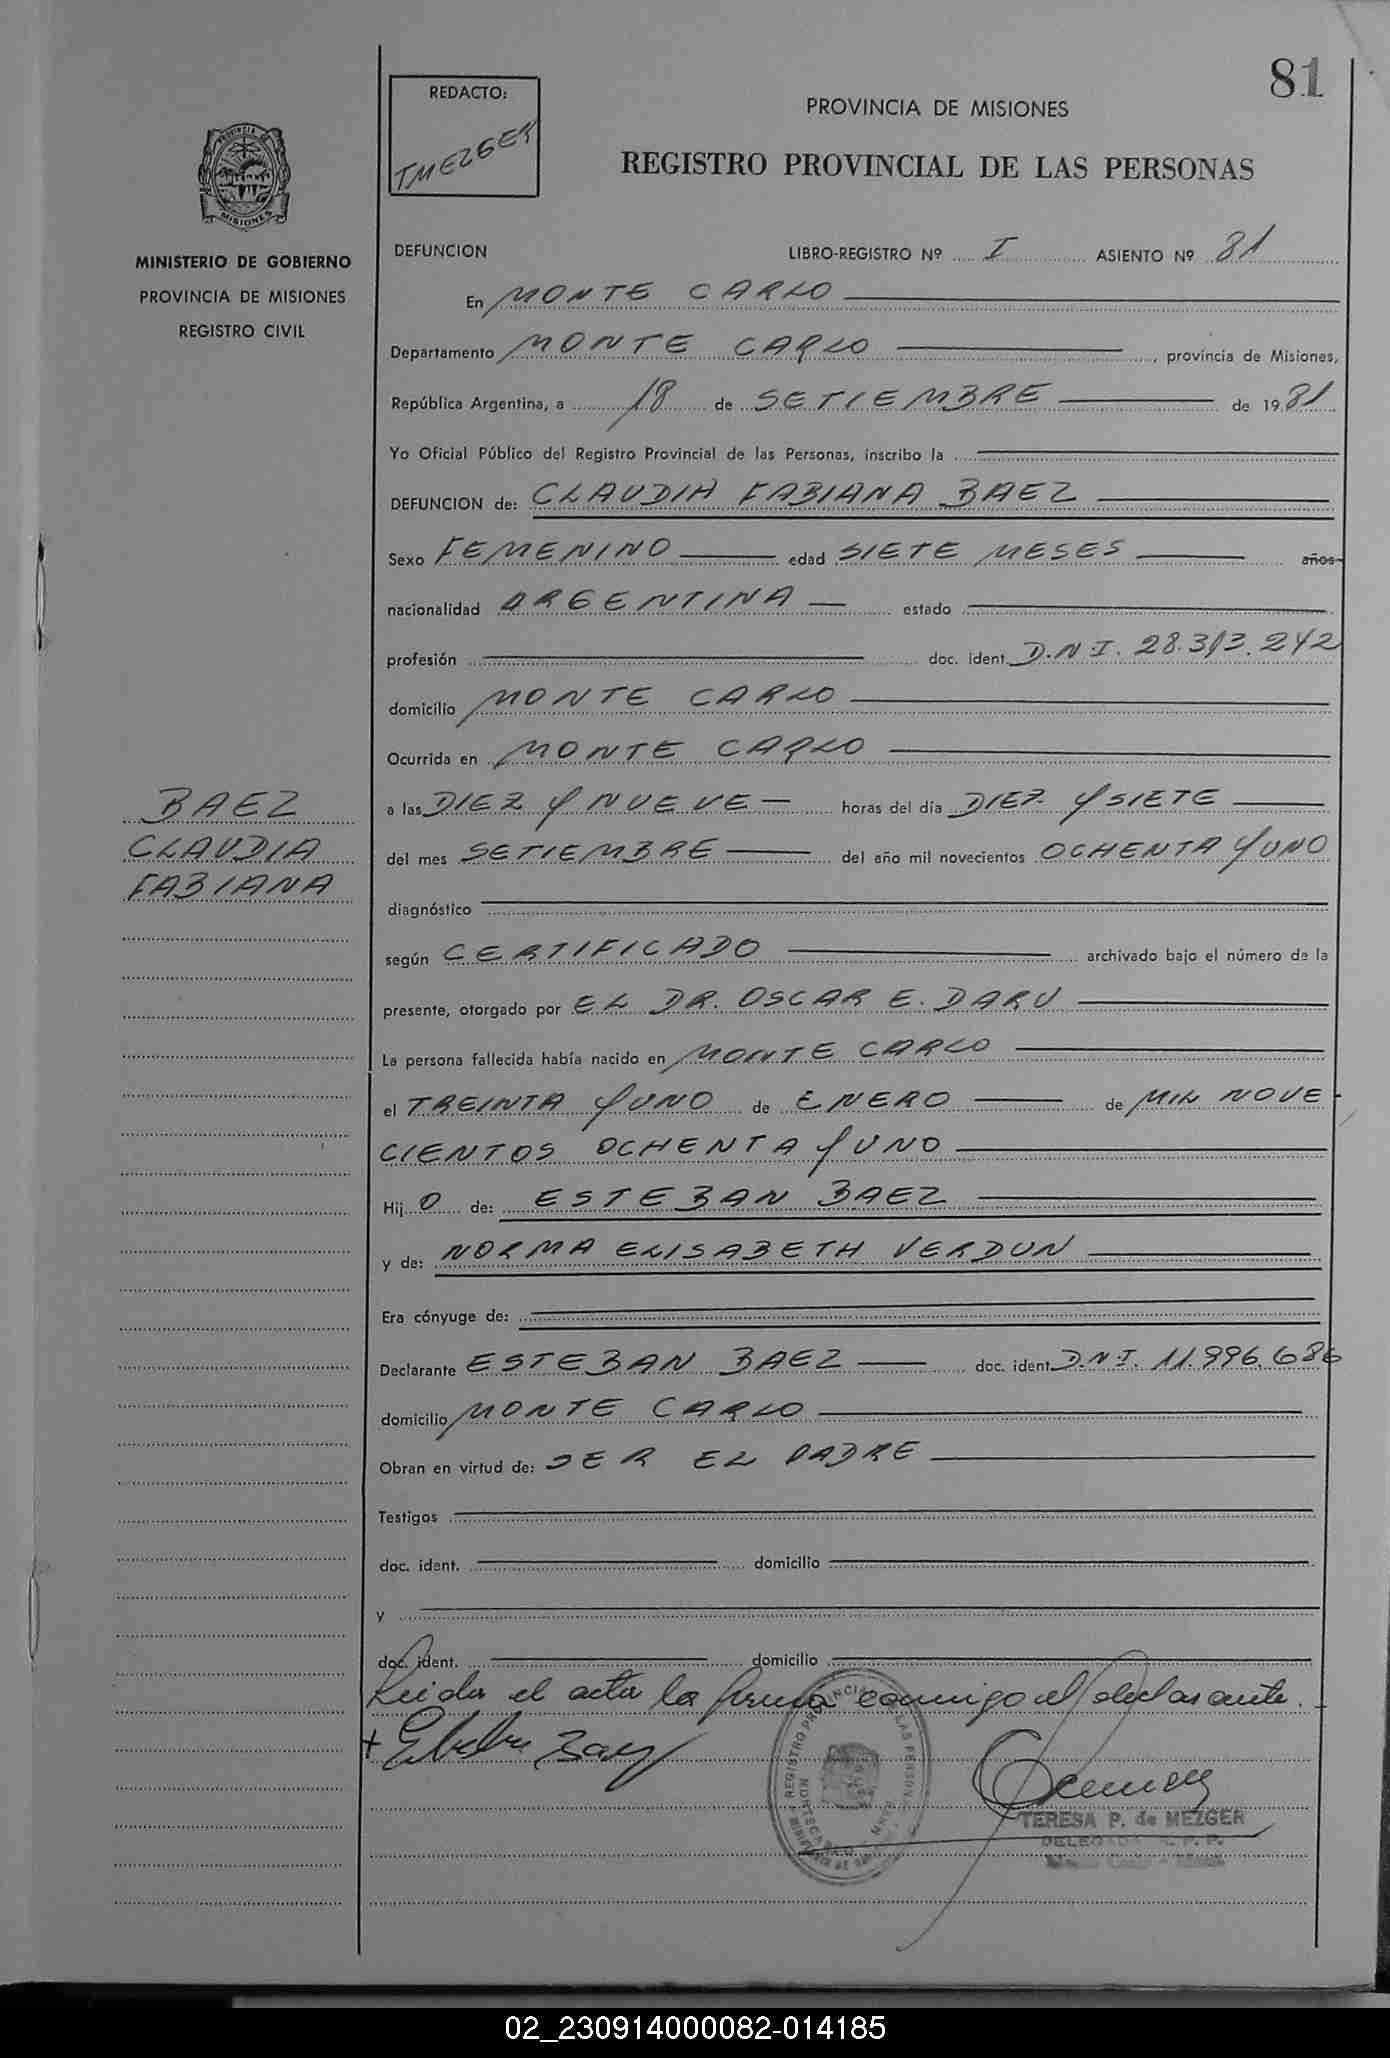 81
REDACTO:
TMEZGER
PROVINCIA DE MISIONES
REGISTRO PROVINCIAL DE LAS PERSONAS
PROVINCIA DE
MISIONES
MINISTERIO DE GOBIERNO
PROVINCIA DE MISIONES
REGISTRO CIVIL
DEFUNCION LIBRO-REGISTRO Nº I ASIENTO Nº 81
En MONTE CARLO
Departamento MONTE CARLO, provincia de Misiones,
República Argentina, a 18 de SETIEMBRE de 1981
Yo Oficial Público del Registro Provincial de las Personas, inscribo la
DEFUNCION de: CLAUDIA FABIANA BAEZ
Sexo FEMENINO edad SIETE MESES años
nacionalidad ARGENTINA estado
profesión doc. ident. D.N.I. 28.313.242
domicilio MONTE CARLO
Ocurrida en MONTE CARLO
a las DIEZ Y NUEVE horas del día DIEZ Y SIETE
del mes SETIEMBRE del año mil novecientos OCHENTA Y UNO
diagnóstico
según CERTIFICADO archivado bajo el número de la
presente, otorgado por EL DR. OSCAR E. DARU
La persona fallecida había nacido en MONTE CARLO
el TREINTA Y UNO de ENERO de MIL NOVE-
CIENTOS OCHENTA Y UNO
Hij O de: ESTEBAN BAEZ
y de: NORMA ELISABETH VERDUN
Era cónyuge de:
Declarante ESTEBAN BAEZ doc. ident. D.N.I. 11.996.686
domicilio MONTE CARLO
Obran en virtud de: SER EL PADRE
Testigos
doc. ident. domicilio
y
doc. ident. domicilio
Leida el acta la firma conmigo el declarante.
BAEZ
CLAUDIA
FABIANA
TERESA P. de MEZGER
DELEGADA R. P. P.
02_230914000082-014185